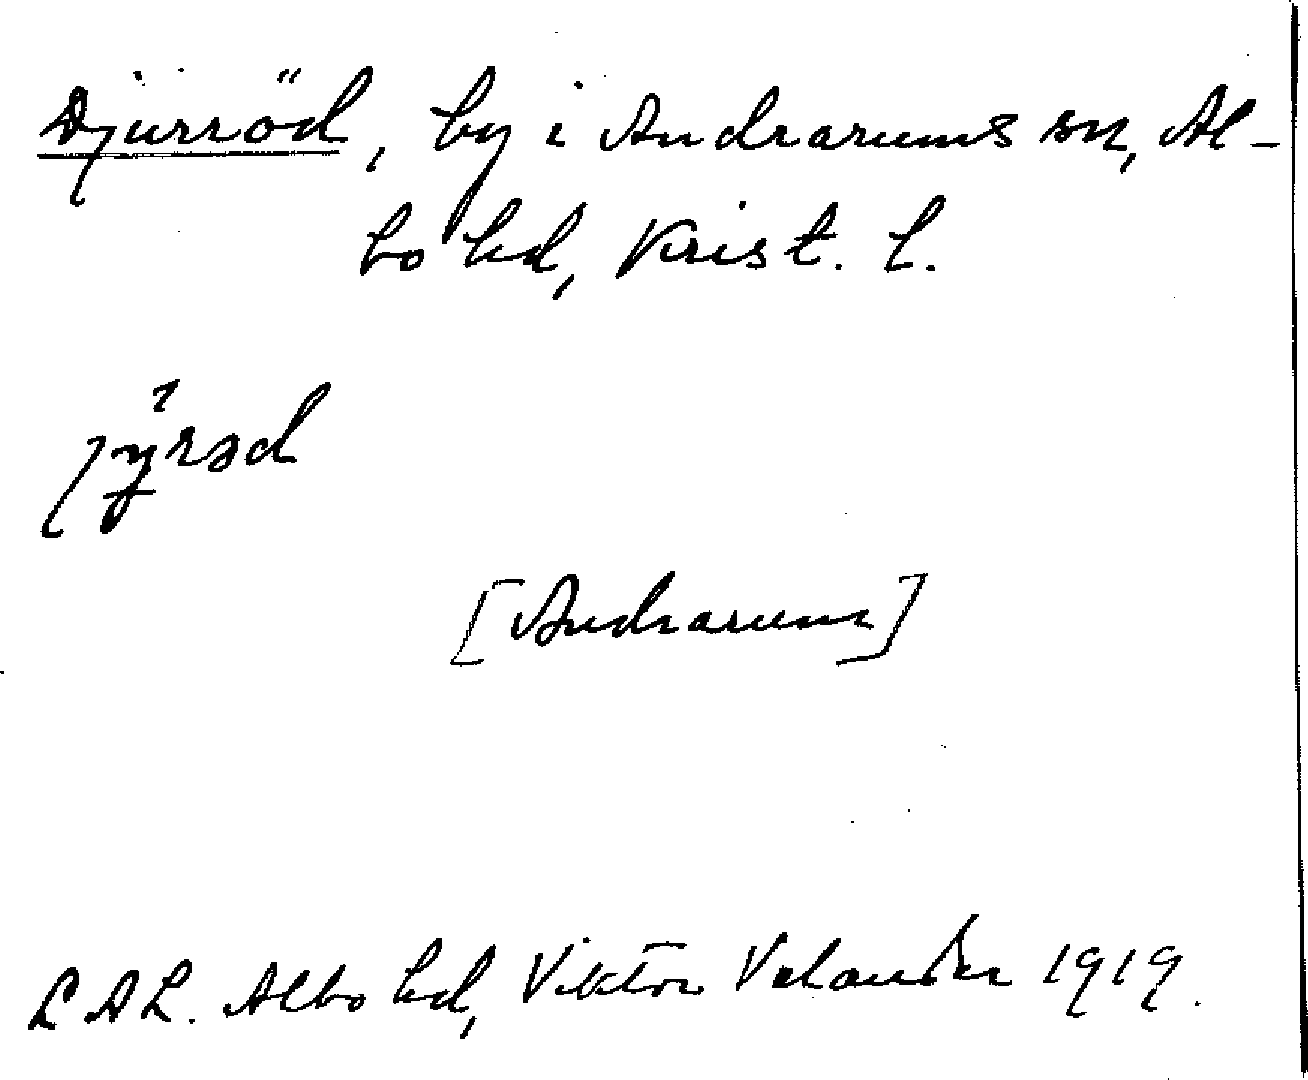 Djurröd, by i Andrarums sn, Al-
bo hd, Krist. l.
[Andrarum]
LAL. Albo hd, Viktor 1919.